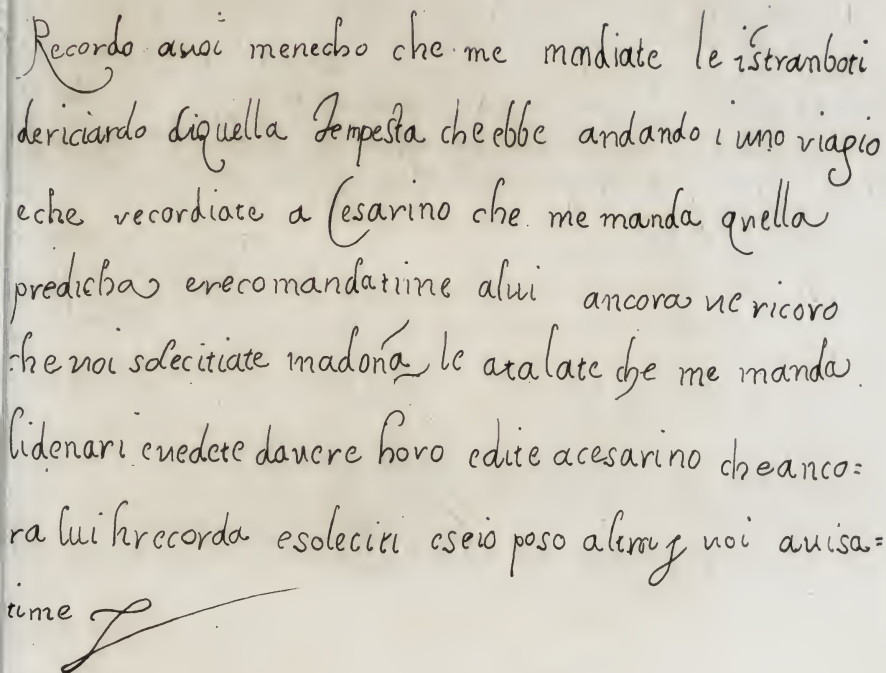 Recordo auoi menecho che me mandiate le istranboti
dericiardo diquella Tempesta cheebbe andando i uno viagio
eche recordiate a Cesarino che me manda quella
predicha erecomandatime alui ancora ve ricoro
che uoi solecitiate madona le atalate che me manda
lidenari euedete dauere horo edite acesarino cheanco=
ra lui li recorda esoleciti eseio poso uoi auisa=
time